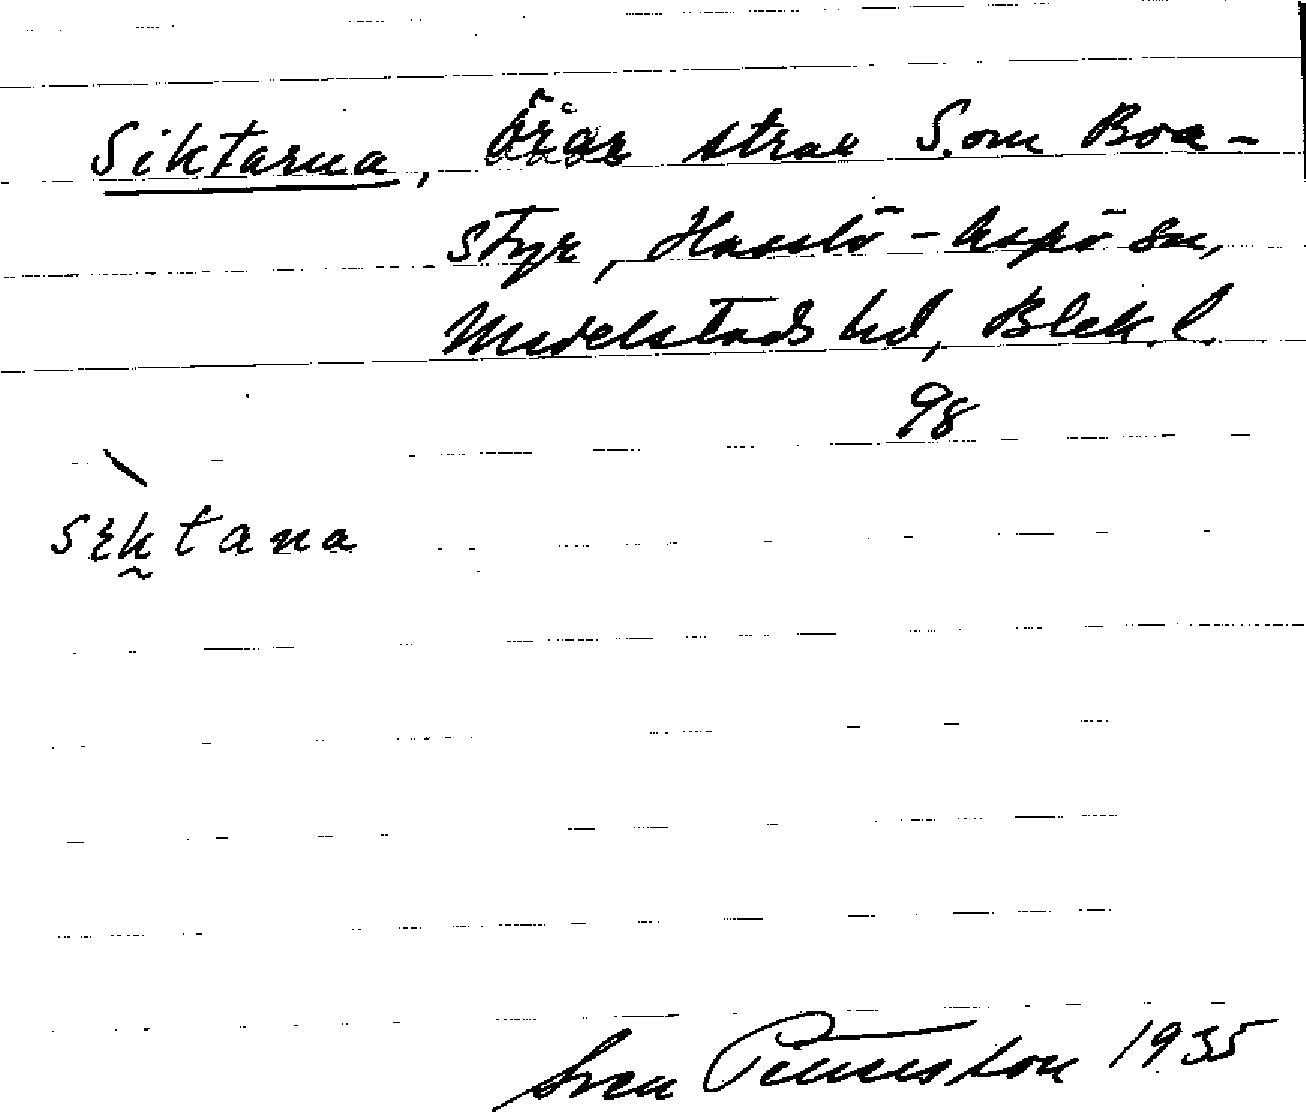 Siktarna, Örar strax S.om Boa-
styr, Hasslö-Aspö sn,
Medelstads hd, Blek. l.
98
siktana
Sven Pettersson 1935